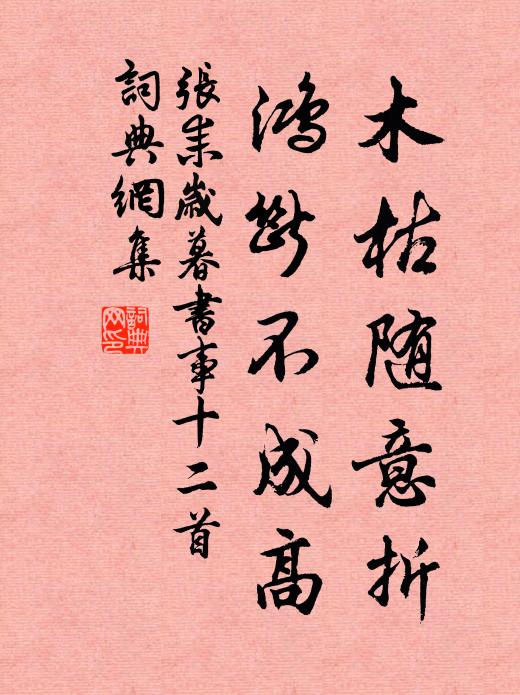 木枯随意折
鴻斷不成高
張耒歲暮書事十二首
詞典網集
詞典
网印